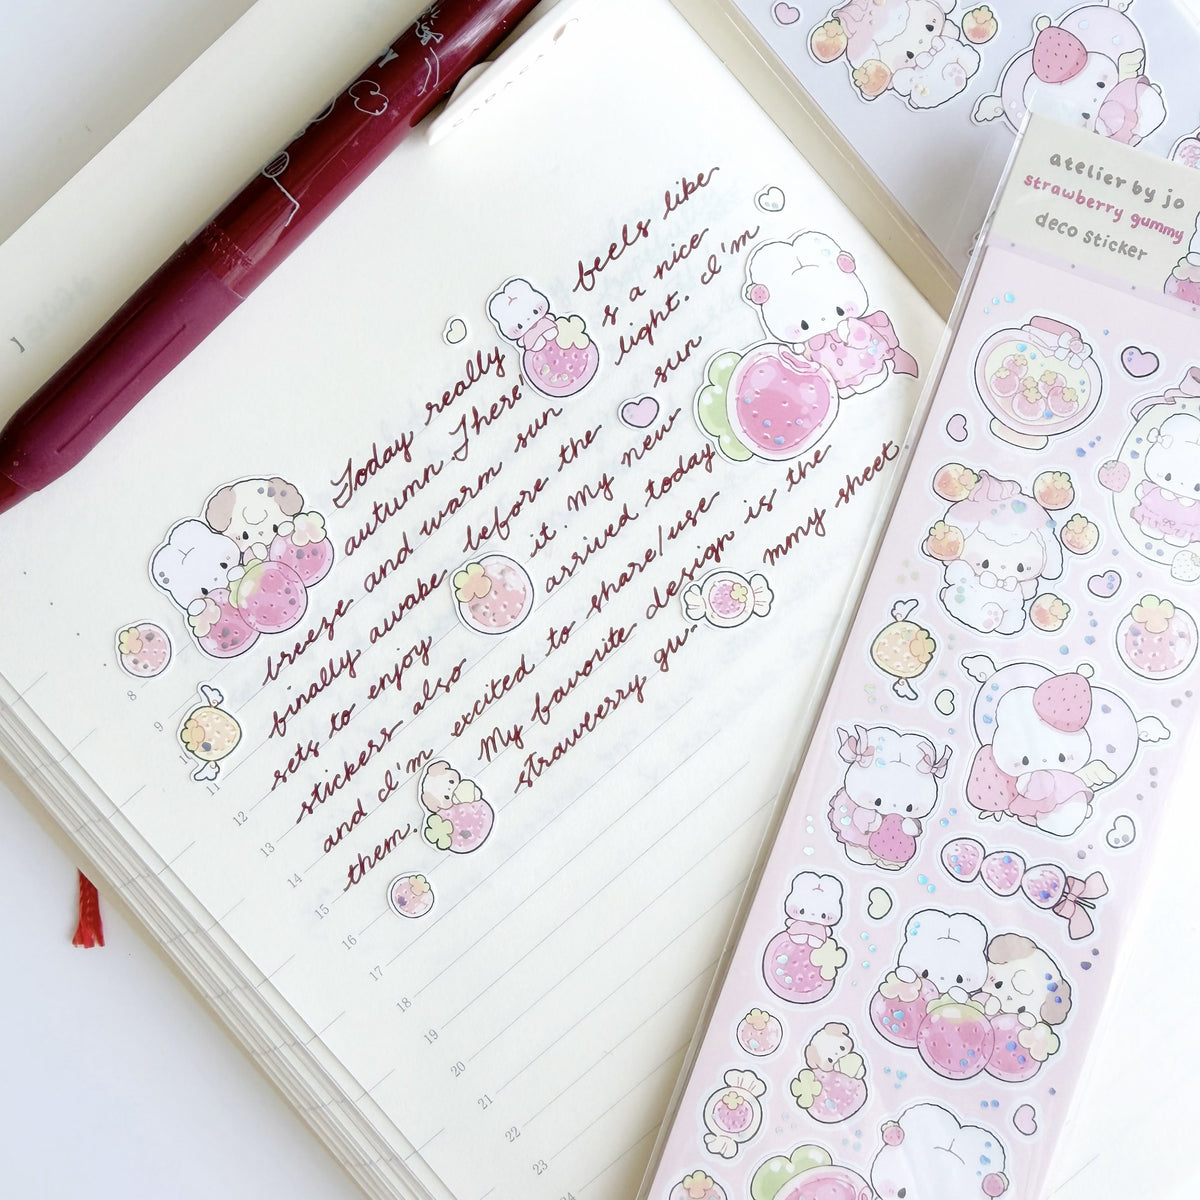 Today really feels like
autumn There's a nice
breeze and warm sun light. I'm
finally awake before the sun
sets to enjoy it. My new
stickers also arrived today
and I'm excited to share/use
them. My favourite design is the
strawberry gu- mmy sheet.
8
9
11
12
13
14
15
16
17
18
19
20
21
22
23
atelier by jo
strawberry gummy
deco sticker